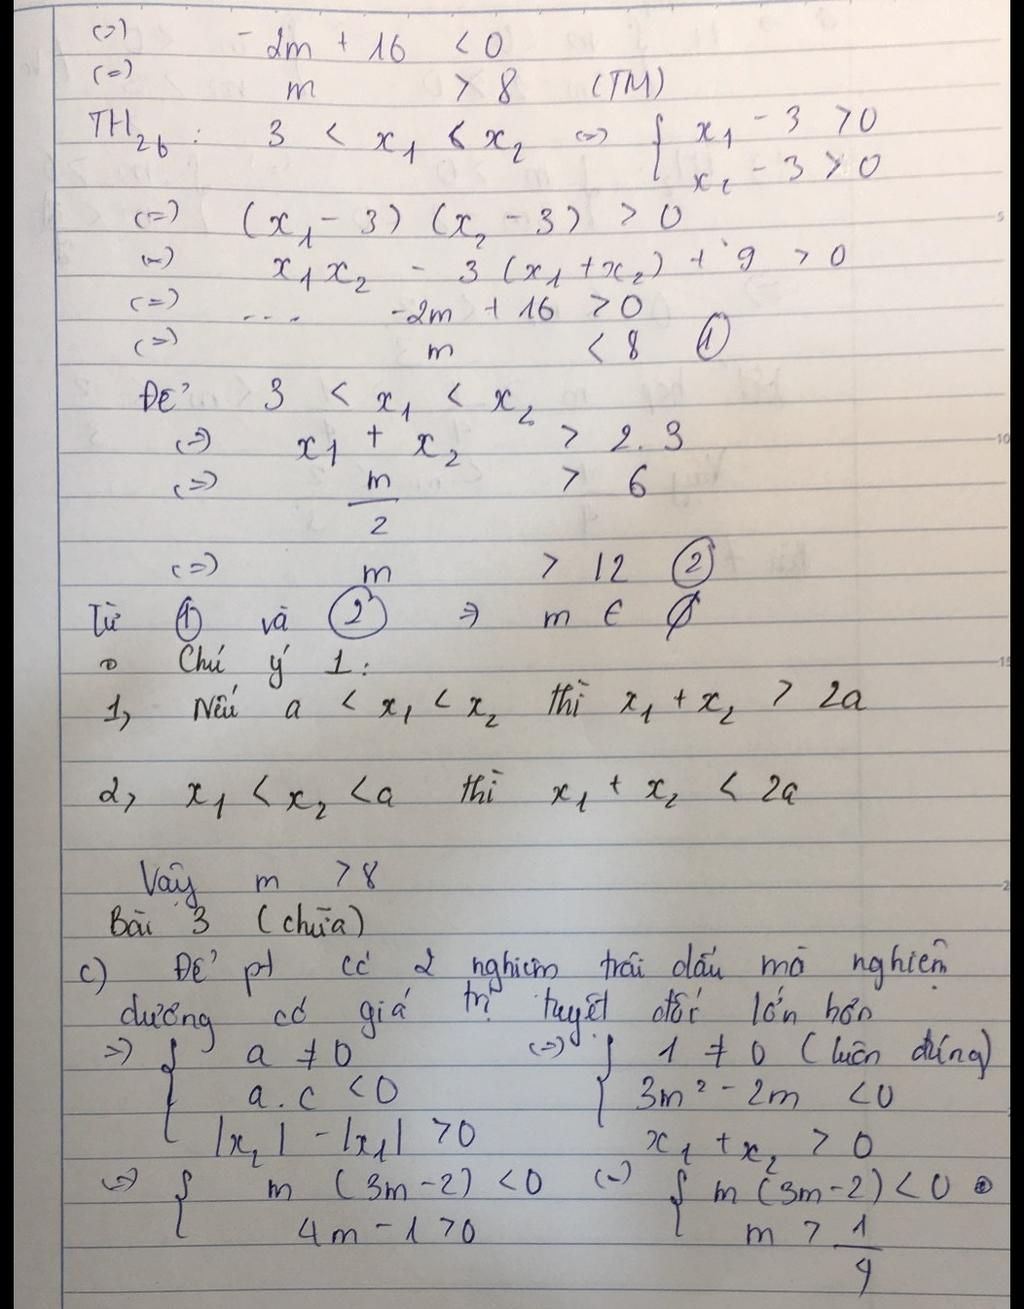 (=) -2m + 16 < 0
(=) m > 8 (TM)
TH2b : 3 < x1 < x2 (=) { x1 - 3 > 0
x2 - 3 > 0
(=) (x1 - 3) (x2 - 3) > 0
(=) x1x2 - 3 (x1 + x2) + 9 > 0
(=) ... -2m + 16 > 0
(=) m < 8 ①
Để 3 < x1 < x2
(=) x1 + x2 > 2.3
(=) m/2 > 6
(=) m > 12 ②
Từ ① và ② => m ∈ ∅
Chú ý 1 :
1, Nếu a < x1 < x2 thì x1 + x2 > 2a
2, x1 < x2 < a thì x1 + x2 < 2a
Vậy m > 8
Bài 3 (chữa)
c) Để pt có 2 nghiệm trái dấu mà nghiệm
dương có giá trị tuyệt đối lớn hơn
=> { a ≠ 0 (=) { 1 ≠ 0 (luôn đúng)
a . c < 0 3m² - 2m < 0
|x2| - |x1| > 0 x1 + x2 > 0
(=) { m (3m-2) < 0 (=) { m (3m-2) < 0
4m - 1 > 0 m > 1/4